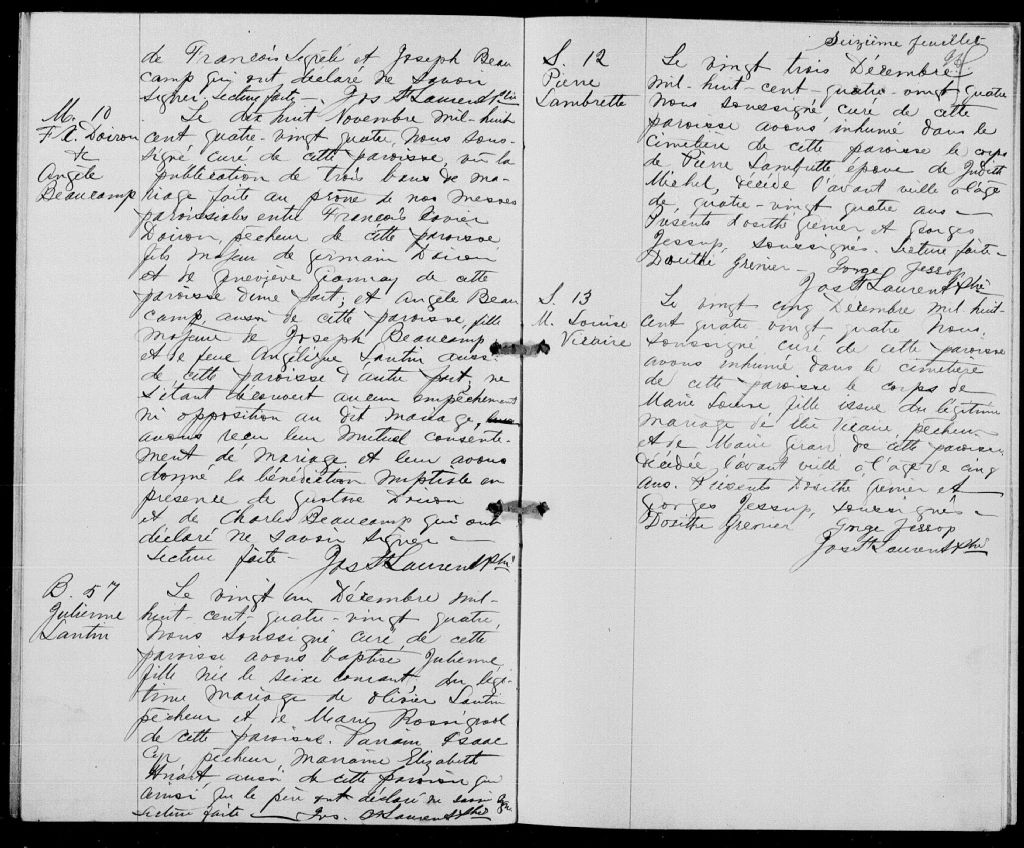 de François Segrété et Joseph Beau
camp qui ont déclaré ne savoir
signer, lecture faite — Jos St Laurent Ptre
M. 10
F. X. Doiron
&
Angèle
Beaucamp
Le dix huit Novembre mil-huit
cent quatre-vingt quatre, Nous sous-
signé curé de cette paroisse, vu la
publication de trois bans de ma-
riage faite au prône de nos messes
paroissiales entre François Xavier
Doiron, pêcheur de cette paroisse
fils majeur de Germain Doiron
et de Geneviève de cette
paroisse d'une part; et Angèle Beau
camp aussi de cette paroisse, fille
majeure de Joseph Beaucamp
et de feue Angélique Lantin aussi
de cette paroisse d'autre part, ne
s'étant découvert aucun empêchement
ni opposition au dit mariage,
avons reçu leur mutuel consente-
ment de mariage et leur avons
donné la bénédiction nuptiale en
présence de Gustave Doiron
et de Charles Beaucamp qui ont
déclaré ne savoir signer —
Lecture faite Jos St Laurent Ptre
B. 57
Julienne
Lantin
Le vingt un Décembre mil-
huit-cent-quatre-vingt quatre,
Nous soussigné curé de cette
paroisse avons baptisé Julienne
fille née le seize courant, du légi-
time mariage de Olivier Lantin
pêcheur et de Marie Rossignol
de cette paroisse. Parrain Isaac
Cyr pêcheur, Marraine Elizabeth
Huart aussi de cette paroisse qui
ainsi que le père ont déclaré ne savoir signer
Lecture faite — Jos. St Laurent Ptre
Seizième feuillet
S. 12
Pierre
Lambrette
Le vingt trois Décembre
mil-huit-cent-quatre-vingt quatre
Nous soussigné curé de cette
paroisse avons inhumé dans le
cimetière de cette paroisse le corps
de Pierre Lambrette époux de Judith
Michel, décédé l'avant veille à l'âge
de quatre-vingt quatre ans —
Présents Dosithé Grenier et Georges
Jessop, soussignés. Lecture faite -
Dosithé Grenier — Gorge Jessop
Jos St Laurent Ptre
S. 13
M. Louise
Vicaire
Le vingt cinq Décembre mil huit-
cent quatre vingt quatre Nous
soussigné curé de cette paroisse
avons inhumé dans le cimetière
de cette paroisse le corps de
Marie Louise, fille issue du légitime
mariage de Vicaire, pêcheur
et de Marie Giran de cette paroisse,
décédée l'avant veille à l'age de cinq
ans. Présents Dosithé Grenier et
Gorges Jessop, soussignés —
Dosithe Grenier Gorge Jessop
Jos St Laurent Ptre